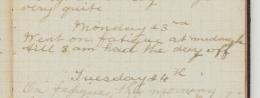 very quite
Monday 23rd
Went on fatigue at midnight
till 3 am had the day off
Tuesday 24th
On fatigue this morning